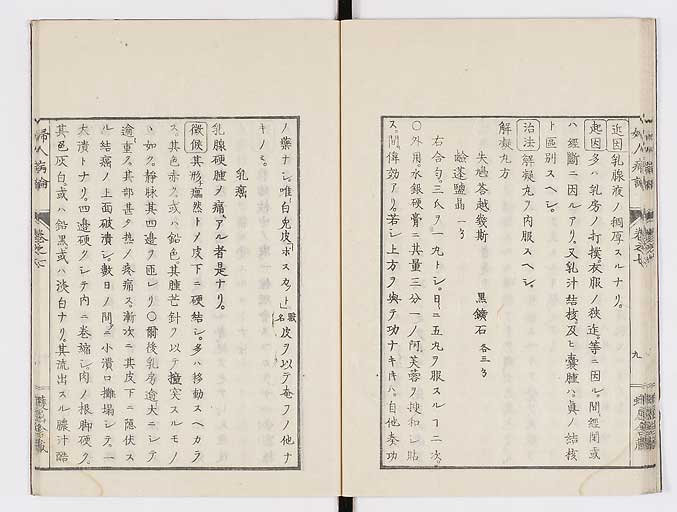 近因 乳腺液ノ稠厚スルナリ。
起因 多ハ乳房ノ打撲。衣服ノ狭迮。等ニ因ル。間。經閉或
ハ經斷ニ因ルアリ。又乳汁結核。及ヒ嚢腫ハ。真ノ結核
ト區別スヘシ。
治法 解凝丸ヲ内服スヘシ。
解凝丸方
失鳩答越幾斯 黒鑛石 各三
蛤蓬鹽晶 一
右合匀。三氏ヲ一丸トシ。日ニ五丸ヲ服スルコ二次。
〇外用。水銀硬膏ニ其量三分一ノ阿芙蓉ヲ揀和シ貼
ス。間偉効アリ。若シ上方ヲ與テ功ナキキハ。自他奏功
ノ藥ナシ。唯白免皮「ボスカット」獸名皮ヲ以テ奄フノ他ナ
キノミ。
乳癌
乳腺硬腫ノ痛アル者是ナリ。
徴候 其形。瘟然トノ皮下ニ硬結シ。多ハ移動スヘカラ
ス。其色赤ク。或ハ鉛色。其腫芒針ヲ以テ撞突スルモノ
ヽ如ク。静脉其四邊ヲ匝レリ〇爾後乳房逾大ニシテ
逾重ク。其部甚タ熱ノ疼痛ス。漸次ニ其皮下ニ隱伏ス
ル結痛ノ上面破潰シ。數日ノ間ニ小潰口攤塌シテ。一
大潰トナリ。四邊硬クシテ内ニ巻縮シ。肉ノ根脚硬ク。
其色灰白。或ハ鉛黒。或ハ淡白ナリ。其流出スル膿汁酷
婦人病論
卷之七
九